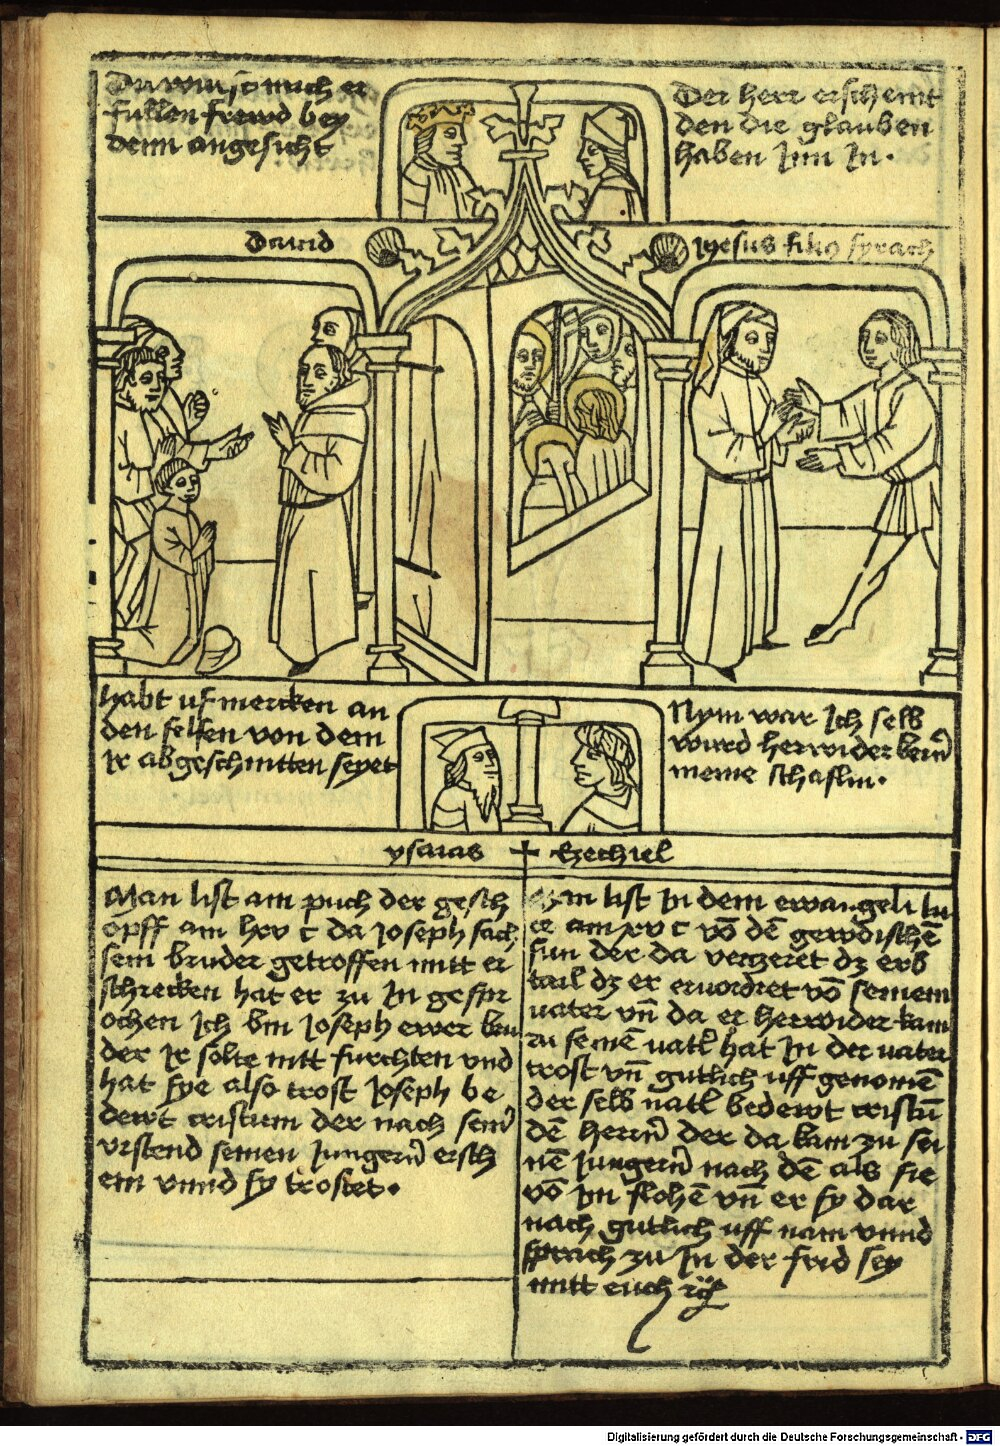 Du wirst mich er
fullen frewd bey
deim angesicht
Der herr erscheint
den die glauben
haben Inn In.
Dauid
ihesus filiꝯ syrach
habt uf mercken an
den felsen von dem
Ir abgeschnitten seyet
Nym war Ich selb
wurd herwider kern̄
meine schaflin.
ysaias
Ezechiel
Man list am puch der gesch
öpff am xlv c da Joseph sach
sein bruder getroffen mitt er
schrecken hat er zu In gespr
ochen Ich bin Joseph ewer bru
der Ir sölte nitt furchten vnd
hat sye also trost Joseph be
dewt cristum der nach sein̄
vrstend seinen Jungern̄ ersch
ein vnnd sy trostet.
Man list In dem ewangeli lu
ce am xv c vō dē gewdischē
sun der da verzeret dz erb
tail dz er ervordret vō seinem
vater vn̄ da er herwider kam
zu seinē vatt̄ hat In der vater
trost vn̄ gutlich uff genomē
der selb vatt̄ bedewt cristū
dē herrn̄ der da kam zu sei
nē Jungern̄ nach dē als sie
vō Im flohē vn̄ er sy dar
nach gutlich uff nam vnnd
sprach zu In der frid sey
mitt euch
Digitalisierung gefördert durch die Deutsche Forschungsgemeinschaft - DFG